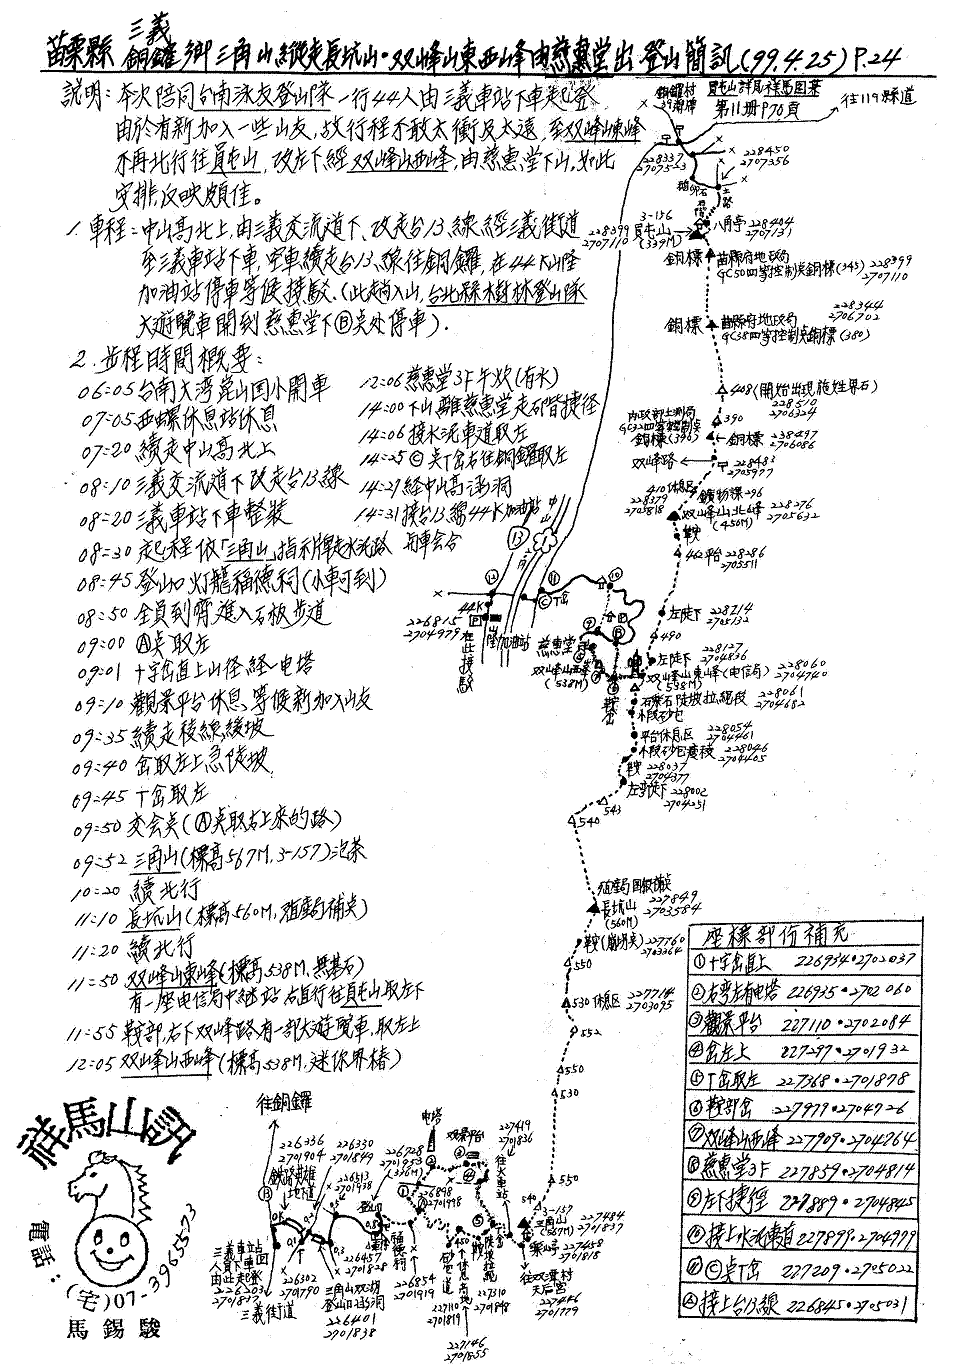 苗栗縣 三義 銅鑼 鄉三角山縱走長坑山·双峰山東西峰由慈惠堂出 登山簡訊(99.4.25)P.24
說明:本次陪同台南泳友登山隊一行44人由三義車站下車起登
由於有新加入一些山友,故行程不敢太衝及太遠,至双峰山東峰
不再北行往員屯山,改左下經双峰山西峰,由慈惠堂下山,如此
安排,反映頗佳。
1.車程:中山高北上,由三義交流道下、改走台13線經三義街道
至三義車站下車,空車續走台13線往銅鑼,在44K山隆
加油站停車等候接駁.(此趟入山,台北縣樹林登山隊
大遊覽車開到慈惠堂下Ⓑ点处停車).
2.步程時間概要:
06:05台南大湾崑山国小開車
07:05西螺休息站休息
07:20續走中山高北上
08:10三義交流道下改走台13線
08:20三義車站下車整裝
08:30起程依「三角山」指示牌走水泥路
08:45登山口灯籠福德祠(小車可到)
08:50全員到齊進入石板步道
09:00Ⓐ点取左
09:01十字岔直上山徑經电塔
09:10觀景平台休息,等候新加入山友
09:35續走稜線緩坡
09:40岔取左上急陡坡
09:45丅岔取左
09:50交会点(Ⓐ点取右上來的路)
09:52三角山(標高567M,3-157)泡茶
10:20續北行
11:10長坑山(標高560M,殖產局補点)
11:20續北行
11:50双峰山東峰(標高538M,無基石)
有一座电信局中継站右直行往員屯山取左下
11:55鞍部,右下双峰路有一部大遊覽車,取左上
12:05双峰山西峰(標高538M,迷你界樁)
12:06慈惠堂3F午炊(有水)
14:00下山離慈惠堂走石階捷径
14:06接水泥車道取左
14:25Ⓒ点丅岔右往銅鑼取左
14:27経中山高涵洞
14:31接台13線44K加油站
与車会合
銅鑼村
員屯山詳見祥馬图集
第11册P70頁
往119縣道
228337
2707523
228450
2707356
八角亭 228404
2707131
228399
2707110
3-156
員屯山
(379M)
銅標
苗縣府地政局
GC50四等控制点銅標(345) 228399
2707110
228344
2706702
銅標
苗縣府地政局
GC38四等控制点銅標(380)
408(開始出現施姓界石)
228510
2706324
390
內政部土測局
GC32四等控制点
銅標(396)
銅標 228497
2706086
双峰路
228482
2705977
410休息区
228379
2705818
礦物課296
双峰山北峰 228276
(450M) 2705632
鞍
442平台 228286
2705511
左陡下 228214
2705132
490
228127
左陡下 2704836
双峰山東峰(电信局) 228060
(538M) 2704740
228061
2704682
平台休息区 228054
2704461
228046
2704405
鞍 228037
2704377
228002
2704231
543
540
44K
226815
2704979
在此接駁
山隆加油站
慈惠堂
双峰山西峰
(538M)
鞍岔
殖產局
長坑山 227849
(560M) 2703584
227760
2703364
550
530休息区 227714
2703095
552
550
530
550
540
座標部份補充
①十字岔直上 226954·2702037
②右弯左有电塔 226935·2702060
③觀景平台 227110·2702084
④岔左上 227297·2701932
⑤丅岔取左 227368·2701878
⑥鞍部岔 227977·2704726
⑦双峰山西峰 227909·2704764
⑧慈惠堂3F 227859·2704814
⑨左下捷徑 227889·2704845
⑩接上水泥車道 227899·2704999
⑪Ⓒ点丅岔 227209·2705022
⑫接上台13線 226845·2705031
祥馬山訊
電話:(宅)07-3965573
馬錫駿
往銅鑼
226336
2701904
226330
2701849
226513
2701938
226728
2701953
电塔
觀景平台
227419
2701836
往火車站
鉄路英雄
地下道
登山口
226898
2701998
3-157
三角山
(567M)
227484
2701837
三義車站
人員下車
由此起登
226203
2701837
三義街道
226302
2701790
三角山双湖
登山口涵洞
226401
2701838
226457
2701828
福德祠
226854
2701919
227110
2701819
227146
2701855
227310
2701848
227458
2701818
往双潭村
天后宮
227446
2701779